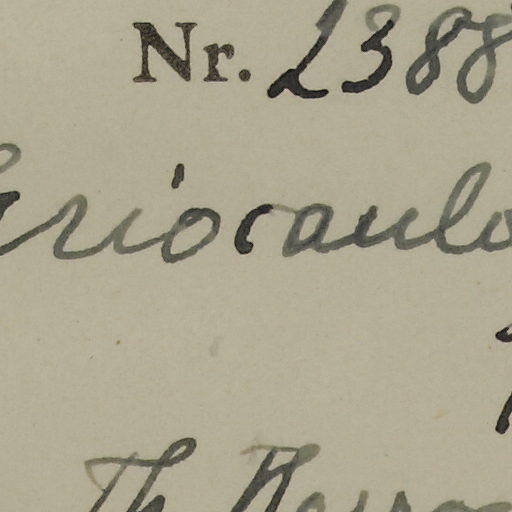 Nr. 2388
Eriocaulo
Th.